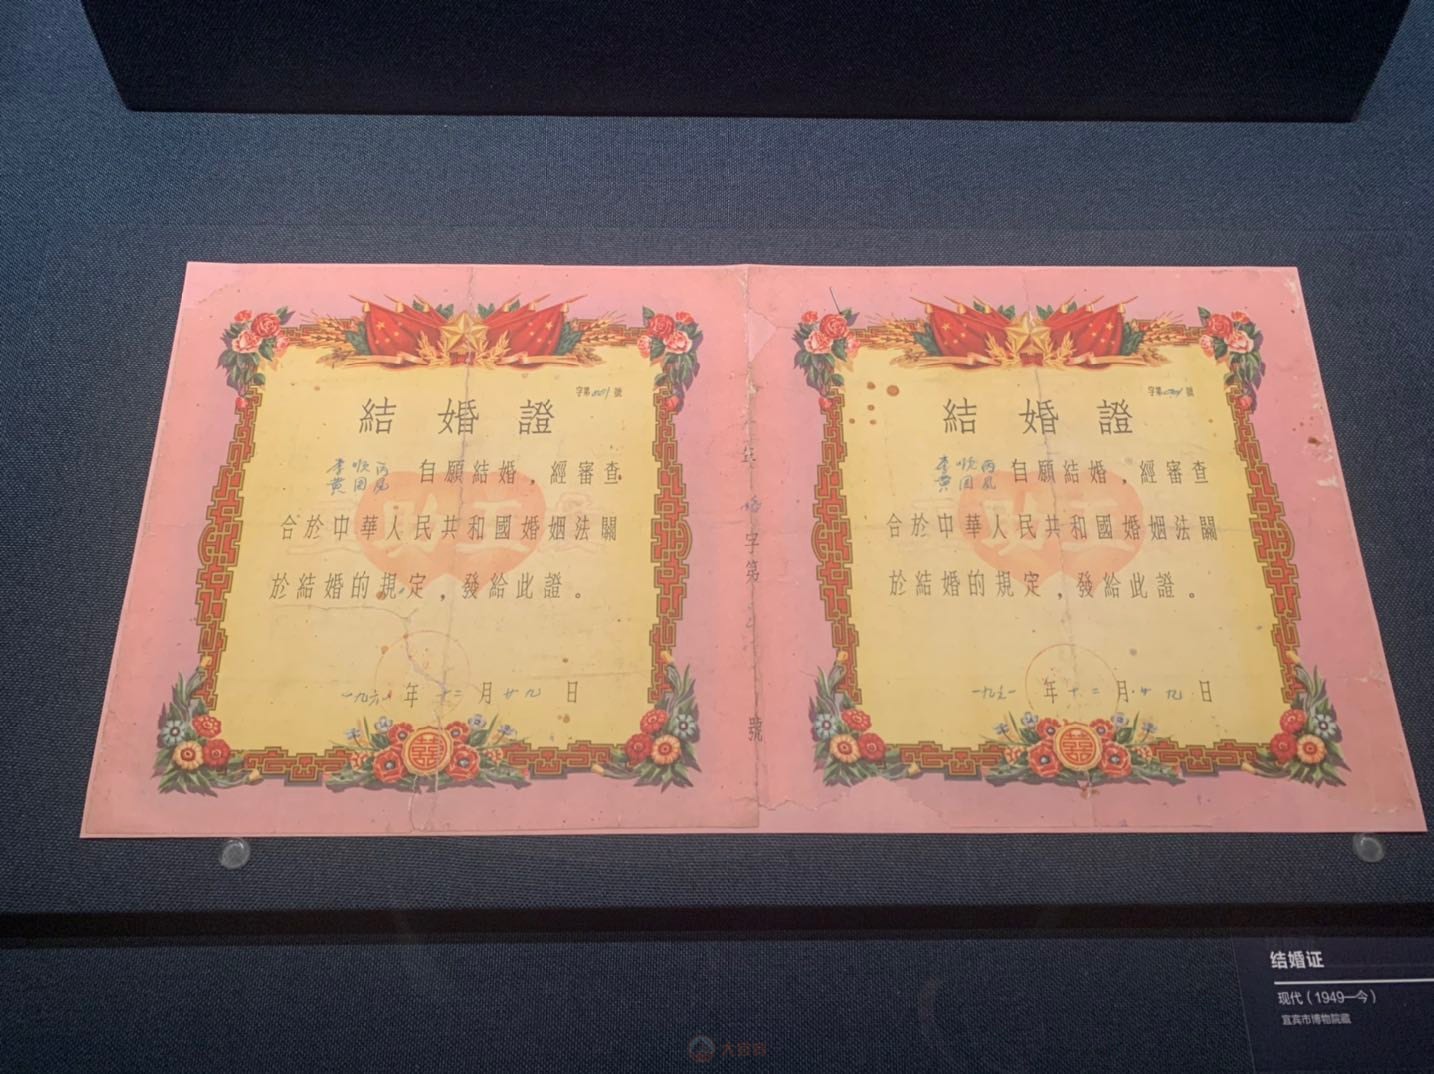 結婚證
自願結婚，經審查
合於中華人民共和國婚姻法關
於結婚的規定，發給此證。
一九六一年十二月廿九日
字第
號
結婚證
自願結婚，經審查
合於中華人民共和國婚姻法關
於結婚的規定，發給此證。
一九六一年十二月廿九日
结婚证
现代（1949—今）
宜宾市博物院藏